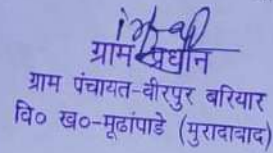 ग्राम प्रधान
ग्राम पंचायत-वीरपुर बरियार
वि० ख०-मूढांपाडे (मुरादाबाद)